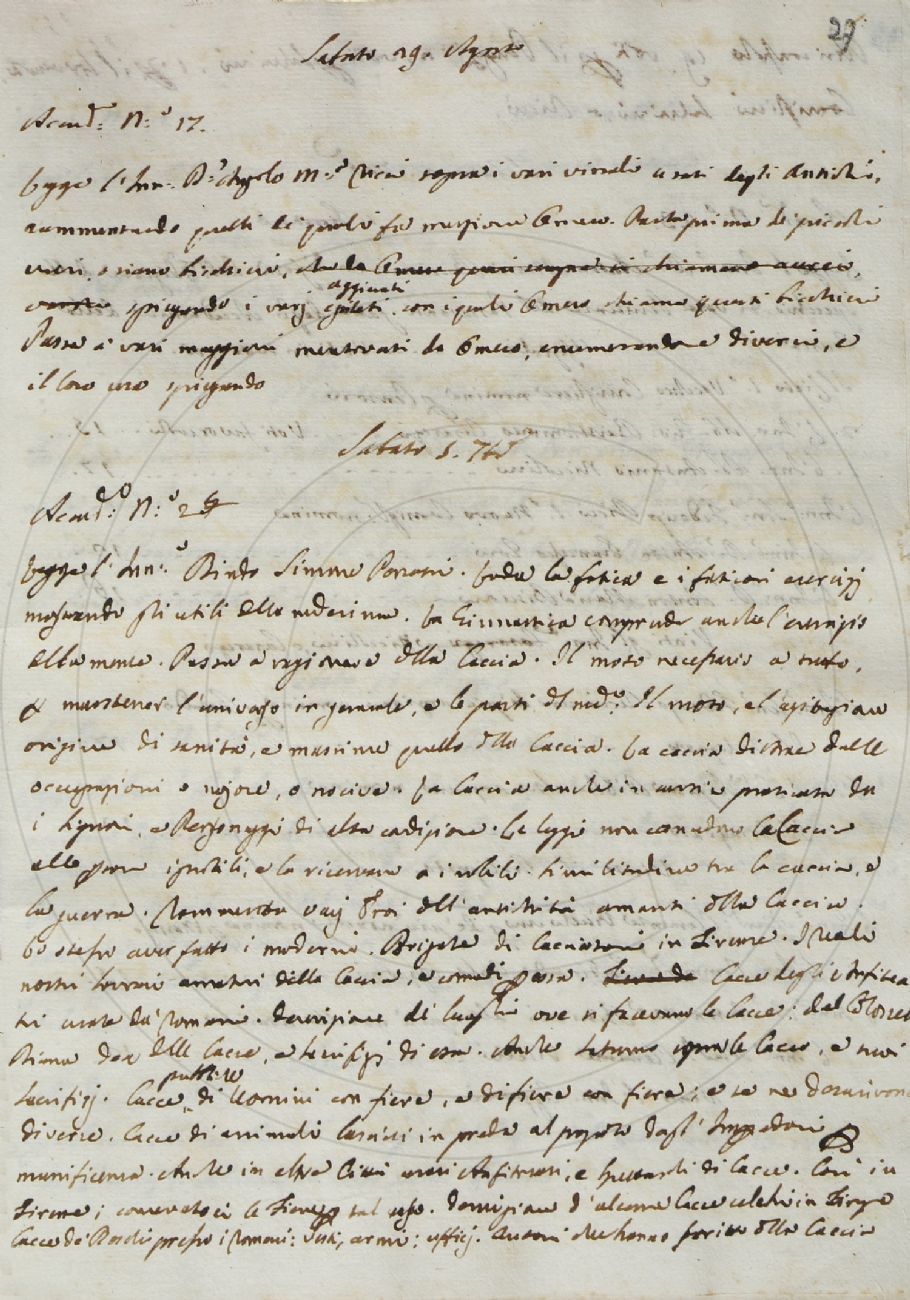 29
Sabato 29. Agosto
Acad.ª N.º 17.
Legge l'Inn.º B.r Angelo M.ª Ricci sopra i vari vinali usati dagli Antichi,
rammentando quelli de quali fa menzione Omero. Parla prima de piccoli
vasi, o siano bicchieri, che da Omero
spiegando i varj epiteti, con i quali Omero chiama questi bicchieri
aggiunti
Passa a vari maggiori mentovati da Omero, enumerandone diversi, e
il loro uso spiegando
Sabato 5. 7bre
Acad.ª N.º 2
Legge l'Inn.º Bindo Simone Peruzzi. Loda la fatica e i faticosi esercizj
mostrando gli utili delle medesime. La Ginnastica comprende anche l'esercizio
della mente. Passa a ragionare della Caccia. Il moto necessario a tutto,
p mantener l'universo in generale, e le parti del med.º Il moto, e l'agitazione
origine di sanità, e massime quello della Caccia. La caccia distrae dalle
occupazioni o nojose, o nocive. La Caccia anche in antico praticata da
i Signori, e Personaggi di alta condizione. Le leggi non concedono la Caccia
alle persone ignobili, e la riservano a i nobili. Similitudine tra la caccia, e
la guerra. Rammenta varj Eroi dell'antichità amanti della Caccia.
Lo stesso aver fatto i moderni. Brigate di Cacciatori in Firenze. I Reali
nostri Sovrani amatori della Caccia, e comodi p essa. Cacce degli Anfitea
tri usate da' Romani. Descrizione de' luoghi ove si facevano le Cacce; dal Colosseo
Diana Dea delle Cacce, e sacrifizj di essa. Anche Saturno sopra le Cacce, e suoi
sacrifizj. Cacce pubbliche di Uomini con fiere, e di fiere con fiere; e se ne descrivono
diverse. Cacce di animali lasciati in preda al popolo dagl'Imperadori p
munificenza. Anche in altre Città eranvi Anfiteatri, e spettacoli di Cacce. Così in
Firenze; conservatoci le Fiere p tal uso. Descrizione d'alcune Cacce celebri in Firenze
Cacce de' Boschi presso i Romani; Vesti, armi; uffizj. Autori che hanno scritto della Caccia